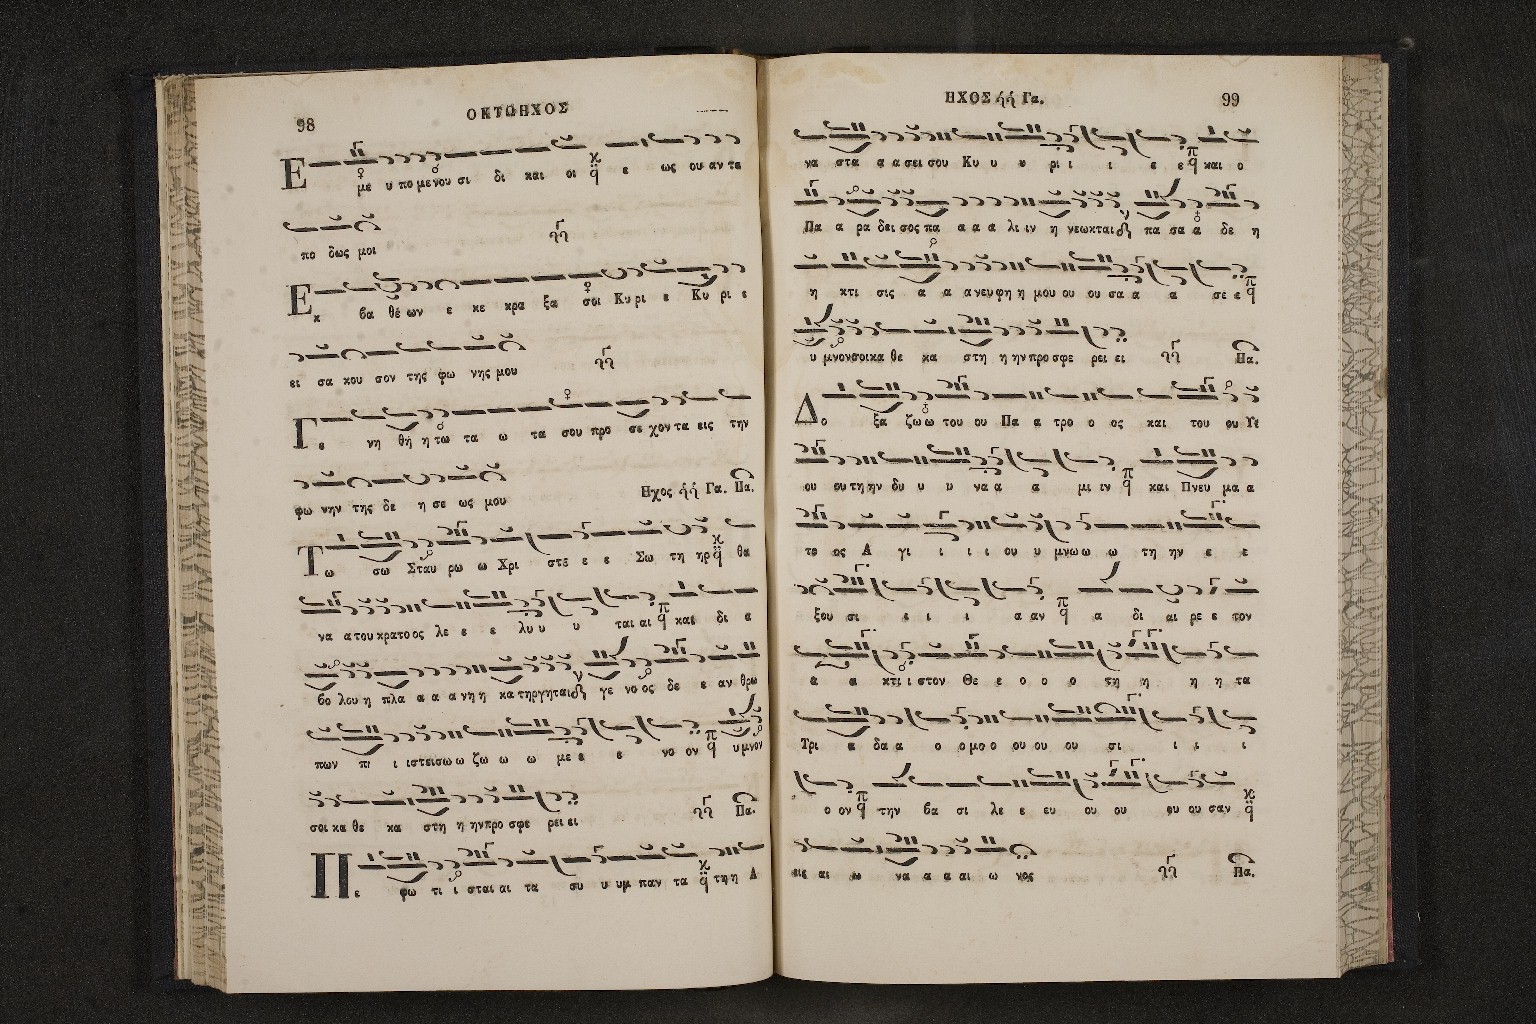 98
ΟΚΤΩΗΧΟΣ
Ε με υ πο με νου σι δι και οι ε ως ου αν τε
πο δως μοι
Εκ βα θε ων ε κε κρα ξα σοι Κυ ρι ε Κυ ρι ε
ει σα κου σον της φω νης μου
Γε νη θη η τω τα ω τα σου προ σε χον τα εις την
φω νην της δε η σε ως μου Ηχος Γα. Πα.
Τω σω Σταυ ρω ω Χρι στε ε ε Σω τη ηρ θα
να α του κρατο ος λε ε ε λυ υ υ ται αι και δι α
βο λου η πλα α α α νη η κα τηργηται γε νο ος δε ε αν θρω
πων πι ι ιστει σω ω ζω ω ω με ε ε νο ον υ μνον
σοι κα θε κα στη η ηνπρο σφε ρει ει Πα.
Πε φω τι ι σται αι τα συ υ υμ παν τα τη η Α
ΗΧΟΣ Γα.
99
να στα α α σει σου Κυ υ υ ρι ι ι ε ε και ο
Πα α ρα δει σος πα α α α λι ιν η νεωκται πα σα α δε η
η κτι σις α α ανευφη η μου ου ου σα α α σε ε
υ μνονσοι κα θε κα στη η ηνπροσφε ρει ει Πα.
Δο ξα ζω ω του ου Πα α τρο ο ος και του ου Υι
ου ου τη ην δυ υ υ να α α μι ιν και Πνευ μα α
το ος Α γι ι ι ι ου υ μνω ω ω τη ην ε ε
ξου σι ι ι ι α αν α δι αι ρε ε τον
α α κτι ι στον Θε ε ο ο ο τη η η η τα
Τρι α δα α ο ο μο ο ου ου ου σι ι ι ι
ο ον την βα σι λε ε ευ ου ου ου ου σαν
εις αι ω να α α αι ω νος Πα.